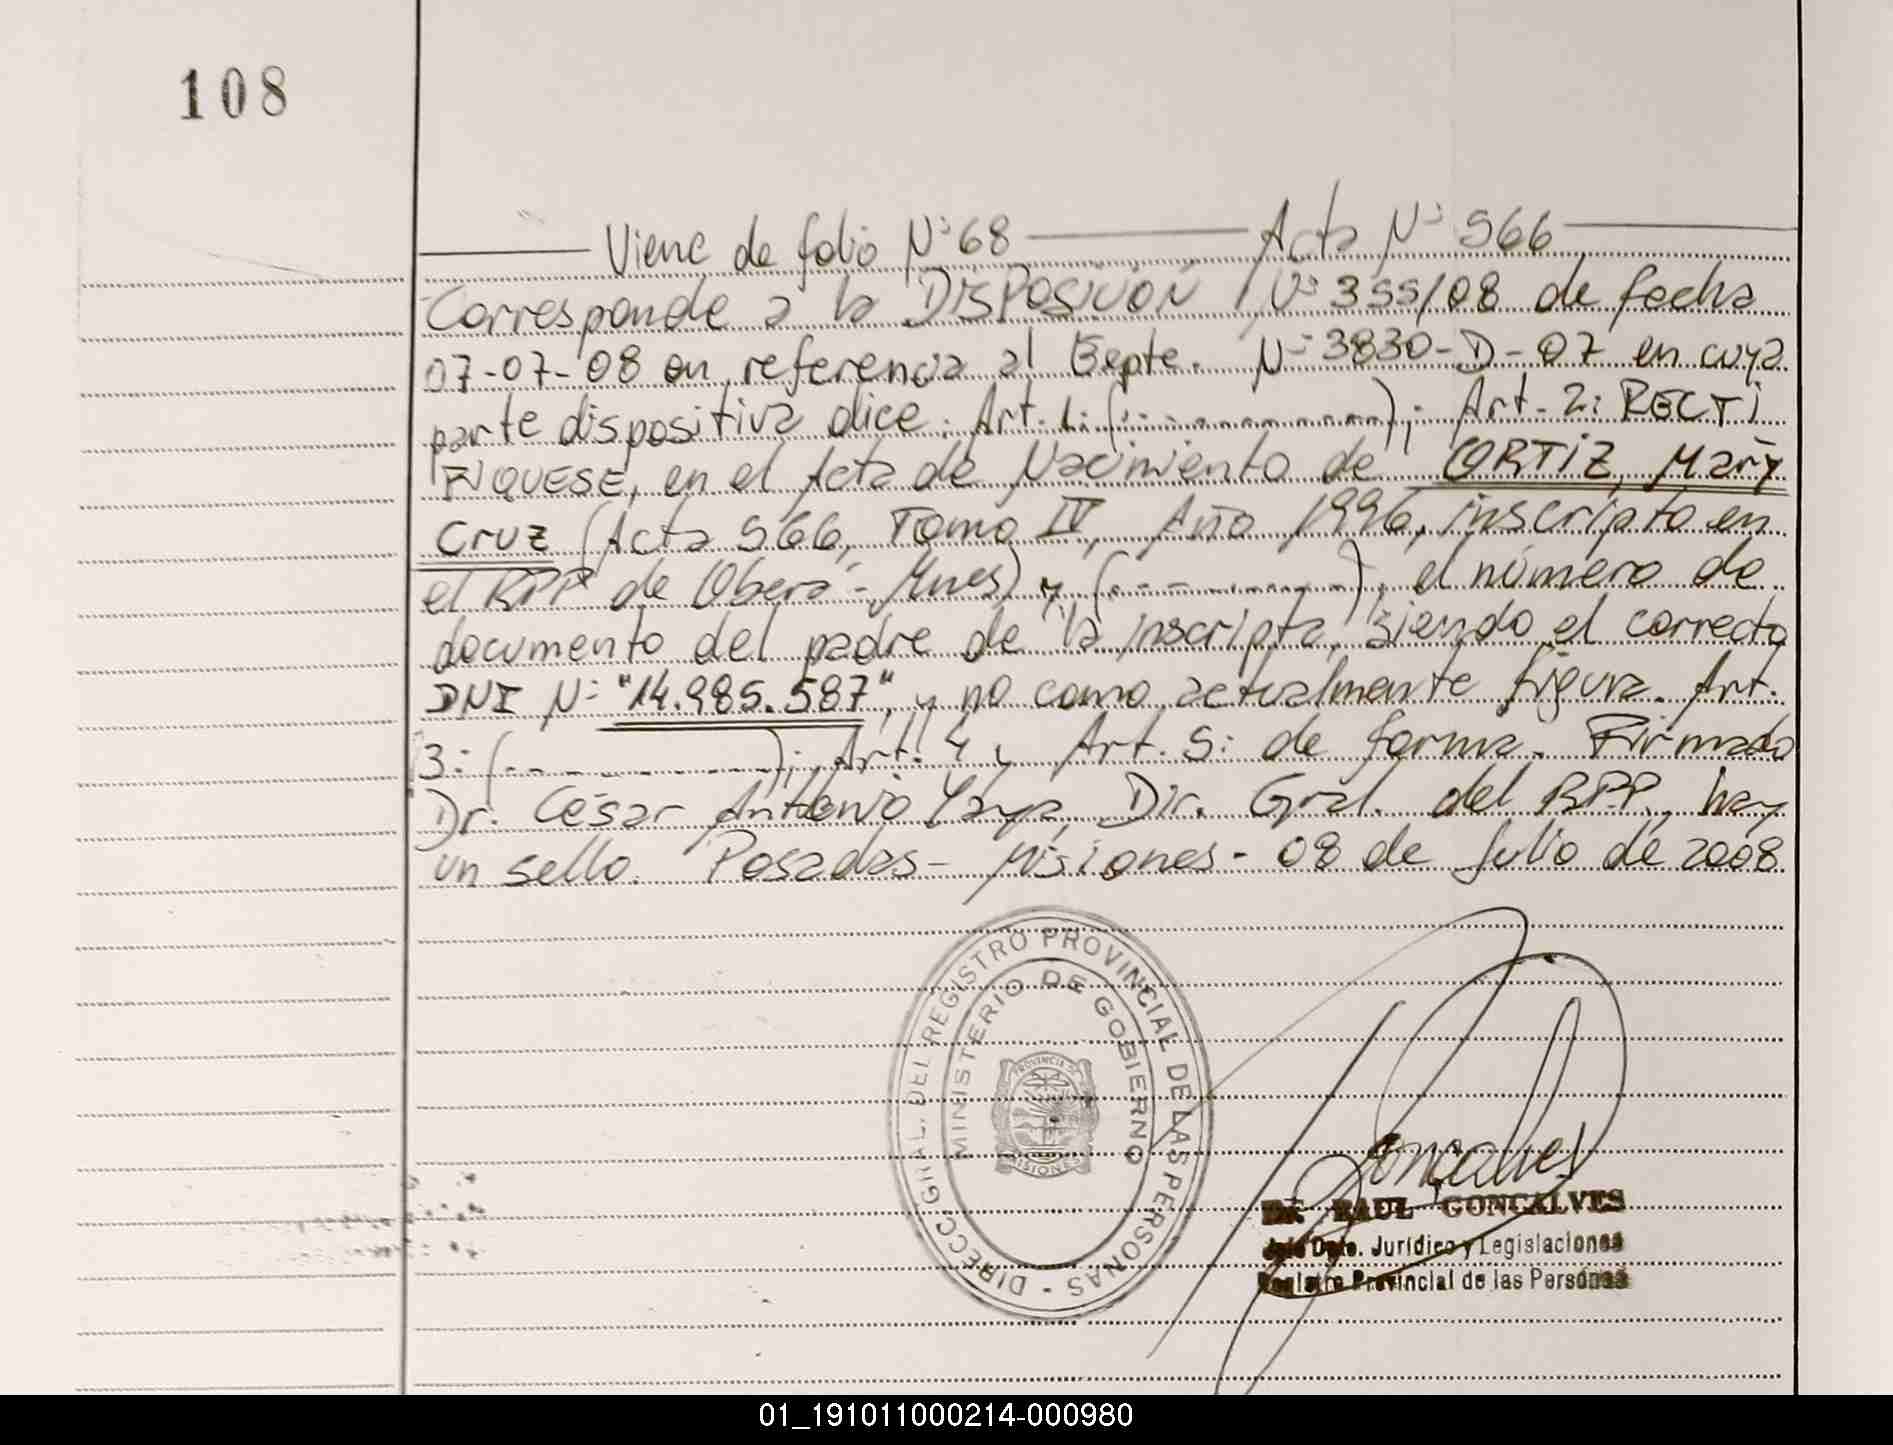 108
Viene de folio Nº 68 Acta Nº 566
Corresponde a la DISPOSICIÓN Nº 355/08 de fecha
07-07-08 en referencia al Expte. Nº 3830-D-07 en cuya
parte dispositiva dice: Art. 1: (..............); Art. 2: RECTI
FIQUESE, en el Acta de Nacimiento de CORTIZ, Mary
Cruz (Acta 566, Tomo IV, Año 1996, inscripto en
el RPP de Oberá - Mnes) y (..............), el número de
documento del padre de la inscripta, siendo el correcto
DNI Nº "14.985.587", y no como actualmente figura. Art.
3: (..............); Art. 4 y Art. 5: de forma. Firmado
Dr. César Antonio Yaya, Dir. Gral. del RPP, hay
un sello. Posadas - Misiones - 08 de Julio de 2008
DIRECC. GRAL. DEL REGISTRO PROVINCIAL DE LAS PERSONAS -
MINISTERIO DE GOBIERNO
PROVINCIA DE
MISIONES
Goncalves
Dr. RAUL GONCALVES
Jefe Dpto. Jurídico y Legislaciones
Registro Provincial de las Personas
01_191011000214-000980